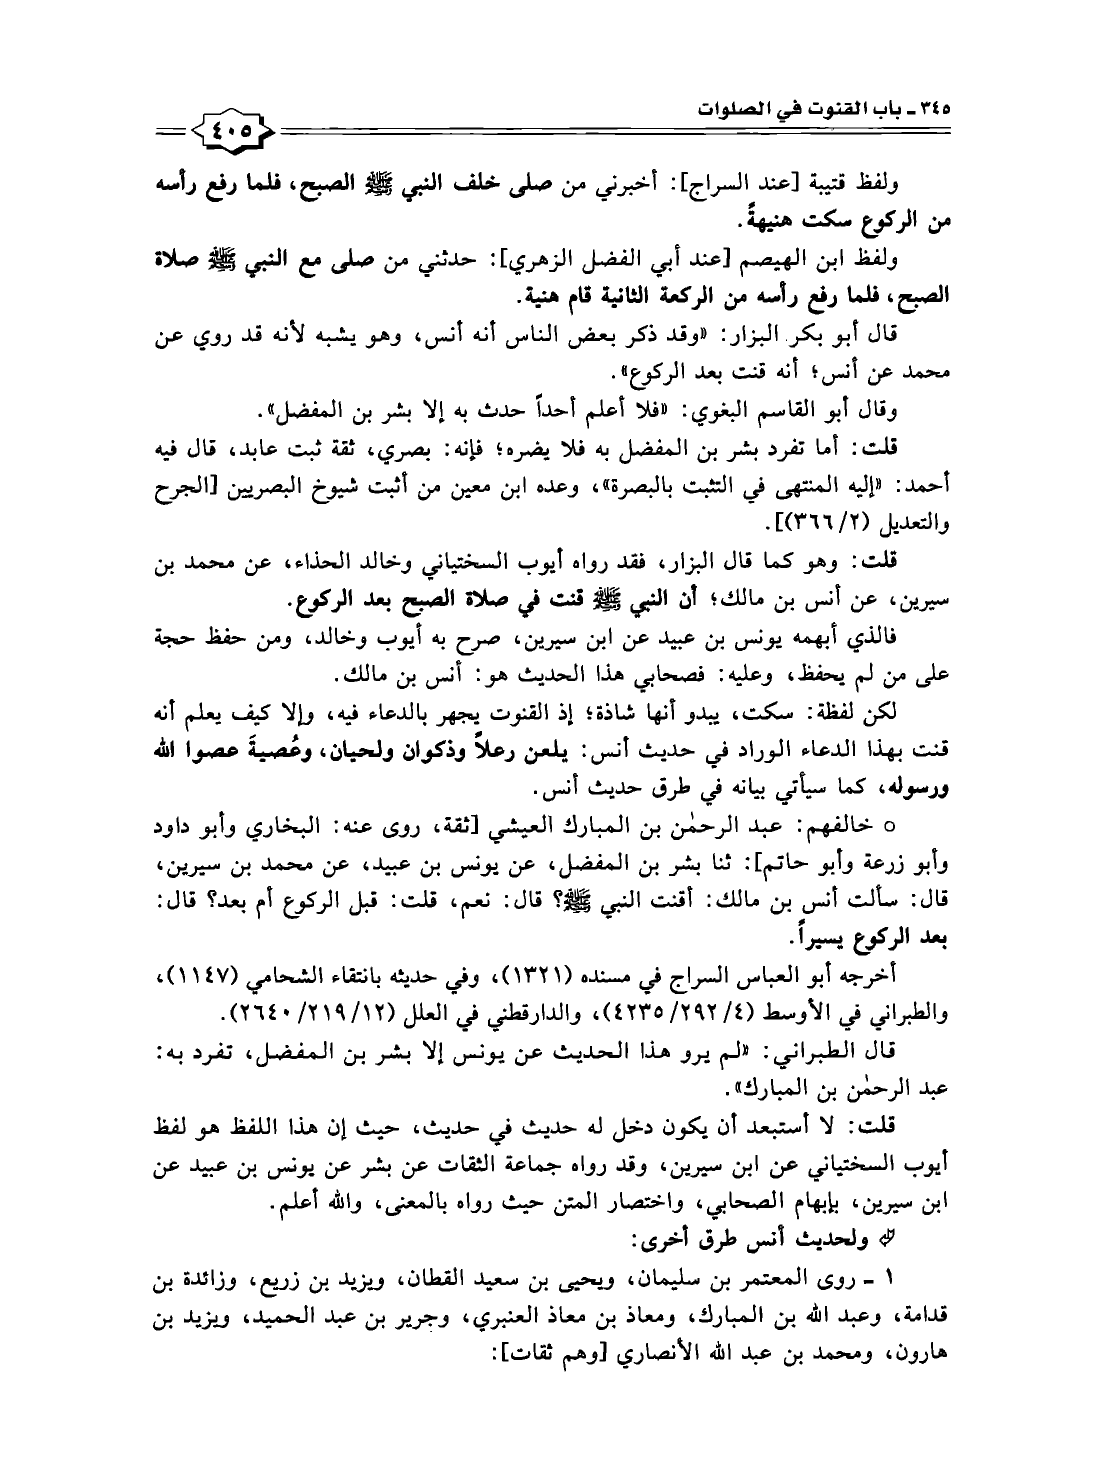 ٣٤٥ - باب القنوت في الصلوات
٤٠٥
ولفظ قتيبة [عند السراج]: أخبرني من صلى خلف النبي ﷺ الصبح، فلما رفع رأسه
من الركوع سكت هنيهةً.
ولفظ ابن الهيصم [عند أبي الفضل الزهري]: حدثني من صلى مع النبي ﷺ صلاة
الصبح، فلما رفع رأسه من الركعة الثانية قام هنية.
قال أبو بكر البزار: «وقد ذكر بعض الناس أنه أنس، وهو يشبه لأنه قد روي عن
محمد عن أنس؛ أنه قنت بعد الركوع».
وقال أبو القاسم البغوي: «فلا أعلم أحداً حدث به إلا بشر بن المفضل».
قلت: أما تفرد بشر بن المفضل به فلا يضره؛ فإنه: بصري، ثقة ثبت عابد، قال فيه
أحمد: «إليه المنتهى في التثبت بالبصرة»، وعده ابن معين من أثبت شيوخ البصريين [الجرح
والتعديل (٢/ ٣٦٦)].
قلت: وهو كما قال البزار، فقد رواه أيوب السختياني وخالد الحذاء، عن محمد بن
سيرين، عن أنس بن مالك؛ أن النبي ﷺ قنت في صلاة الصبح بعد الركوع.
فالذي أبهمه يونس بن عبيد عن ابن سيرين، صرح به أيوب وخالد، ومن حفظ حجة
على من لم يحفظ، وعليه: فصحابي هذا الحديث هو: أنس بن مالك.
لكن لفظة: سكت، يبدو أنها شاذة؛ إذ القنوت يجهر بالدعاء فيه، وإلا كيف يعلم أنه
قنت بهذا الدعاء الوراد في حديث أنس: يلعن رعلاً وذكوان ولحيان، وعُصيةَ عصوا الله
ورسوله، كما سيأتي بيانه في طرق حديث أنس.
○ خالفهم: عبد الرحمٰن بن المبارك العيشي [ثقة، روى عنه: البخاري وأبو داود
وأبو زرعة وأبو حاتم]: ثنا بشر بن المفضل، عن يونس بن عبيد، عن محمد بن سيرين،
قال: سألت أنس بن مالك: أقنت النبي ﷺ؟ قال: نعم، قلت: قبل الركوع أم بعد؟ قال:
بعد الركوع يسيراً.
أخرجه أبو العباس السراج في مسنده (١٣٢١)، وفي حديثه بانتقاء الشحامي (١١٤٧)،
والطبراني في الأوسط (٤/ ٢٩٢/ ٤٢٣٥)، والدارقطني في العلل (١٢/ ٢١٩/ ٢٦٤٠).
قال الطبراني: «لم يرو هذا الحديث عن يونس إلا بشر بن المفضل، تفرد به:
عبد الرحمٰن بن المبارك».
قلت: لا أستبعد أن يكون دخل له حديث في حديث، حيث إن هذا اللفظ هو لفظ
أيوب السختياني عن ابن سيرين، وقد رواه جماعة الثقات عن بشر عن يونس بن عبيد عن
ابن سيرين، بإبهام الصحابي، واختصار المتن حيث رواه بالمعنى، والله أعلم.
ولحديث أنس طرق أخرى:
١ - روى المعتمر بن سليمان، ويحيى بن سعيد القطان، ويزيد بن زريع، وزائدة بن
قدامة، وعبد الله بن المبارك، ومعاذ بن معاذ العنبري، وجرير بن عبد الحميد، ويزيد بن
هارون، ومحمد بن عبد الله الأنصاري [وهم ثقات]: